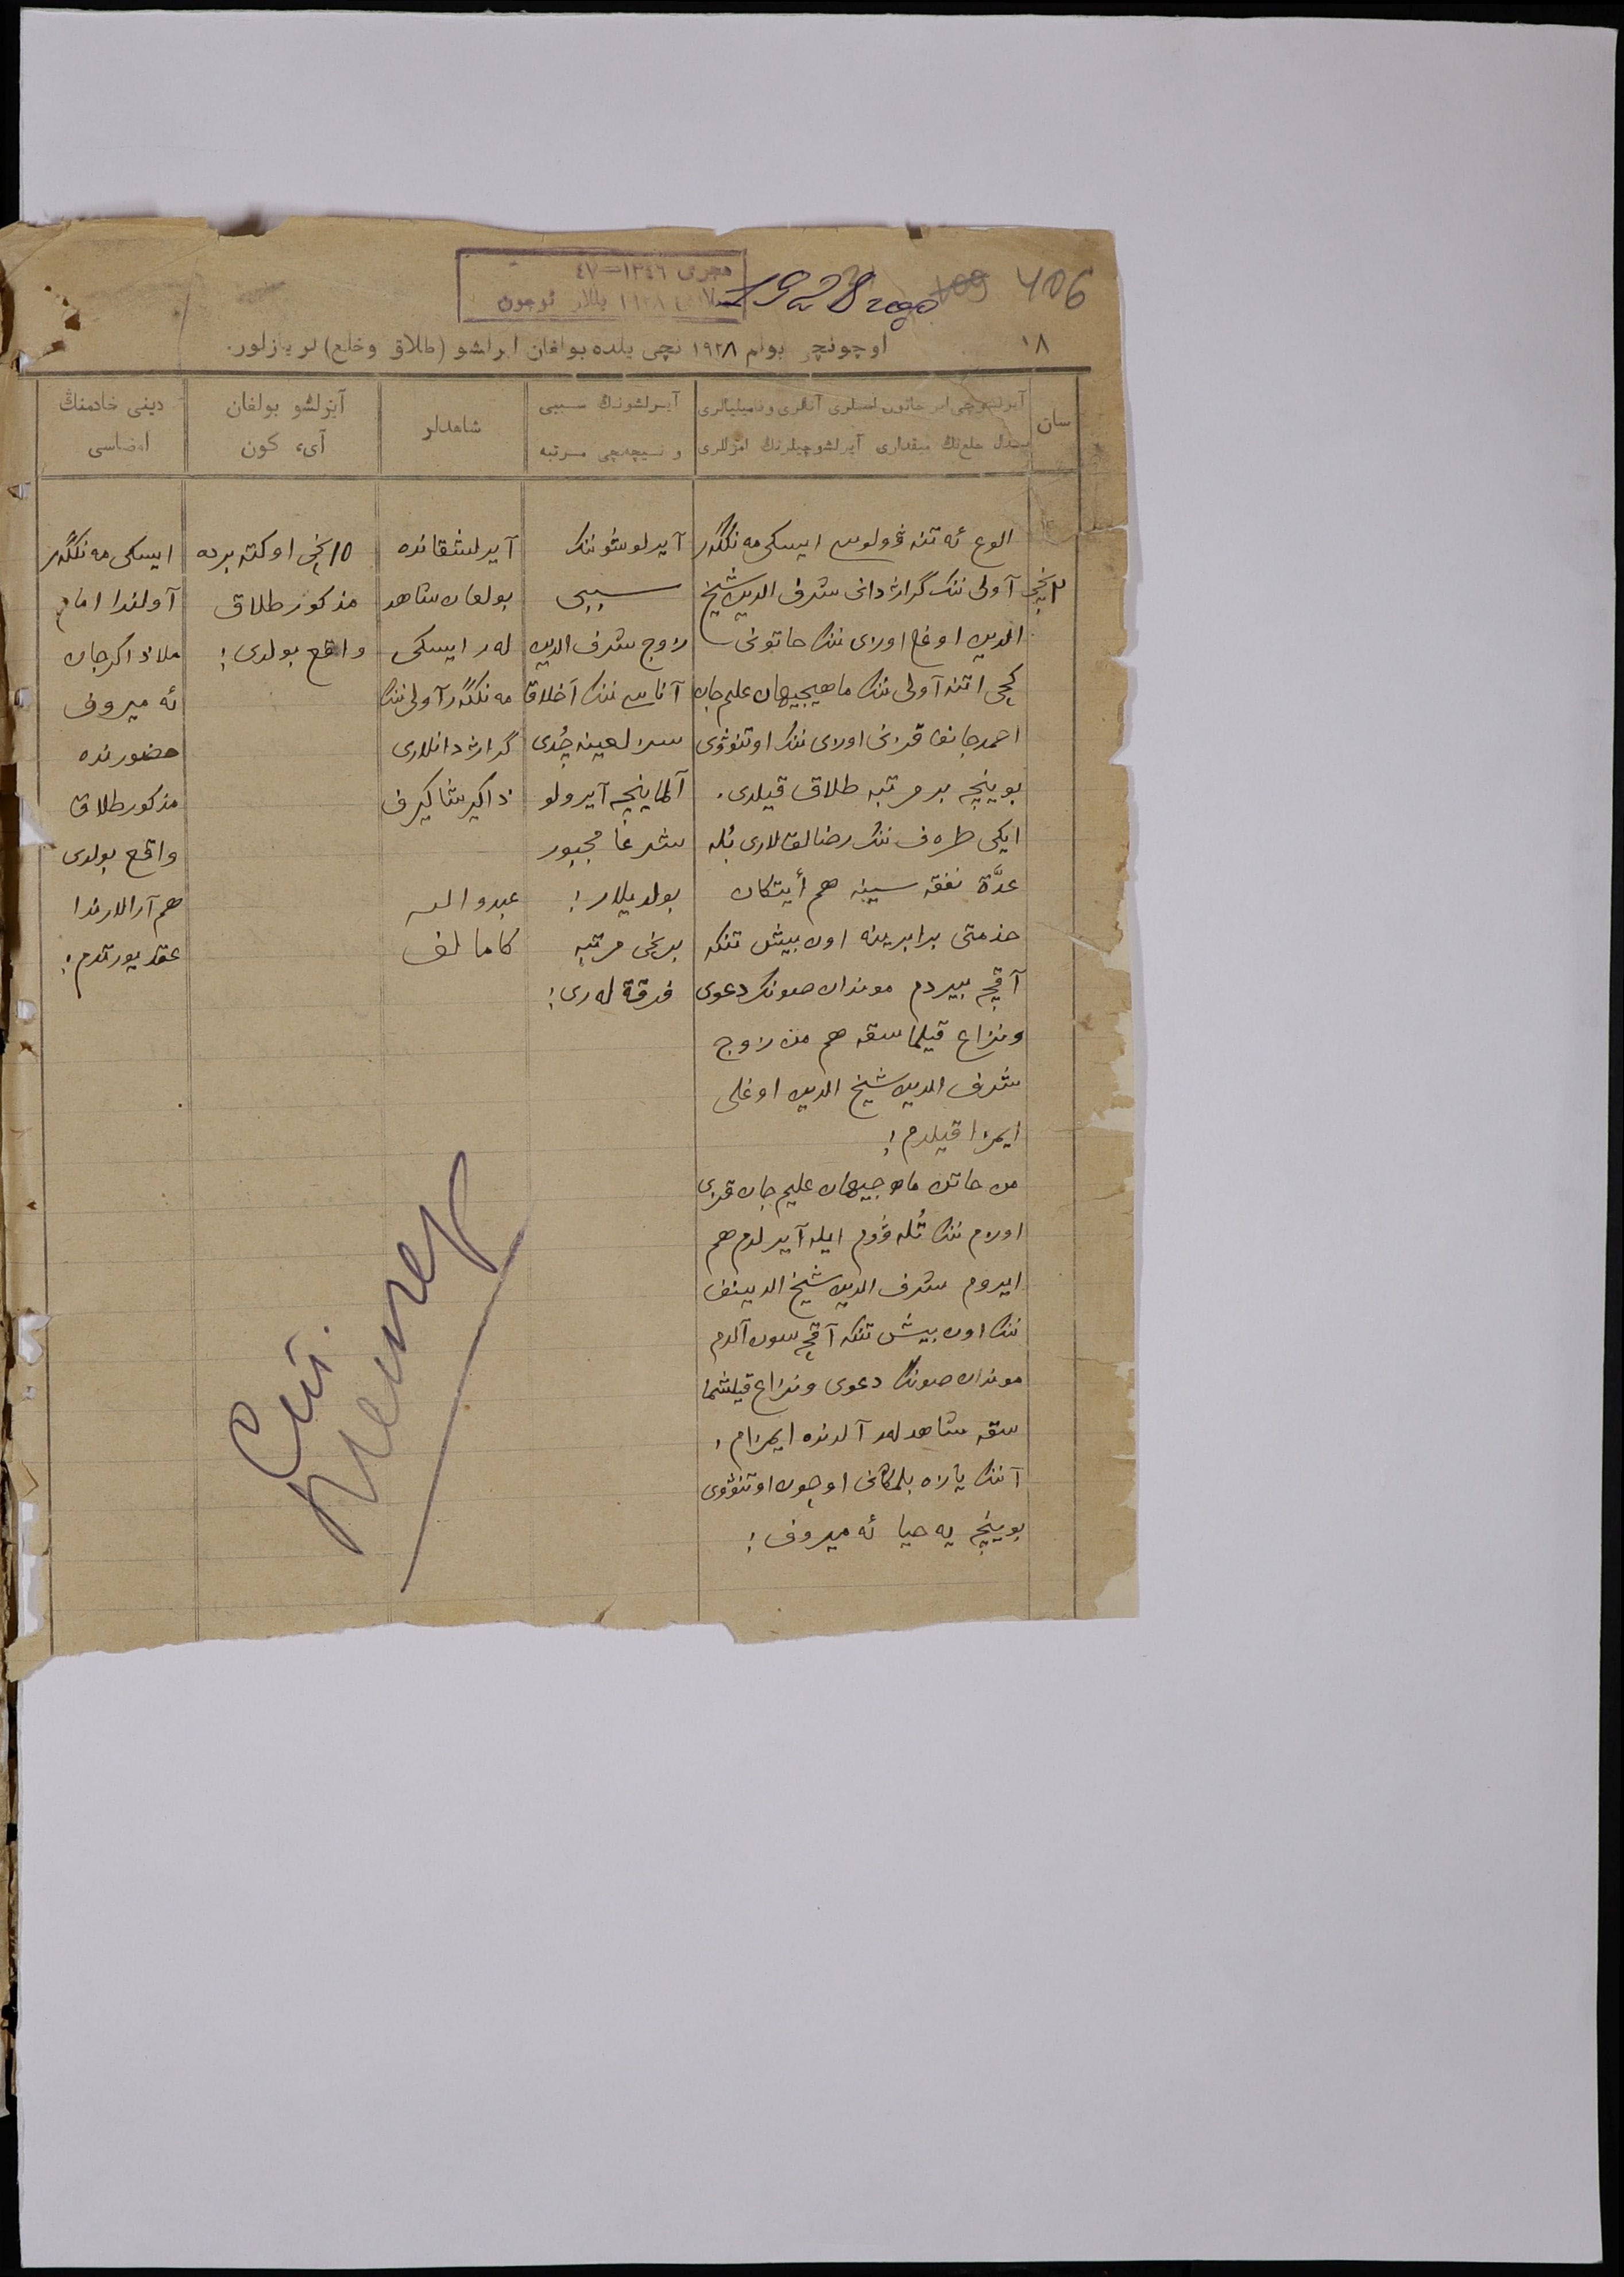 406
109
1928 года
هجری ١٣٤٦=٤٧
میلادی ١٩٢٨ یللار ئوچون
١٨
اوچونچی بولم ١٩٢٨ نچی یلده بولغان ایرلشو (طلاق وخلع) لر یازلور.
سان
آیرلشوچی ایر خاتون اسملری آتالری وفامیلیالری
بدل خلع‌نڭ مقداری آیرلشوچیلرنڭ امزالری
آیرلشونڭ سببی
و نیچه‌نچی مرتبه
شاهدلر
آیرلشو بولغان
آی، كون
دینی خادمنڭ
امضاسی
٣ نچی
الوغ ئه تنه ڤولوس ایسكی مه نگگر
آولی ننك گراژدانی شرف الدین شیخ
الدین اوغلی اورای ننك خاتونی
كچی اتنه آولی ننك ماهیجیهان علیم جان
احمدجانف قزنی اورای ننك اوتنوڤی
بوینچه بر مرتبه طلاق قیلدی.
ایكی طره ف ننك رضالقلاری بله
عدّة نفقه سینه هم أیتكان
خذمتی برابرینه اون بیش تنكه
آقچه بیردم موندان صونك دعوی
ونزاع قیلماسقه هم من زوج
شرف الدین شیخ الدین اوغلی
ایمزا قیلدم؛
من خاتن ماه جیهان علیم جان قزی
اورام ننك تله ڤوم ایله آیرلدم هم
ایروم شرف الدین شیخ الدینف
ننك اون بیش تنكه آقچه سون آلدم
موندان صونك دعوی ونزاع قیلشما
سقه شاهدلهر آلدنده ایمزام؛
آننك یازه بلماگانی اوچون اوتنوڤی
بوینچه یه حیا ئه میروف؛
آیرلوشو ننك
سببی
زوج شرف الدین
آناسی ننك أخلاق
سزلعینه چدی
آلماینچه آیرولو
شرغا مجبور
بولدیلار؛
برنچی مرتبه
فرقة له ری؛
آیرلشقانده
بولغان شاهد
له ر ایسكی
مه نگگر آولی ننك
گراژدانلاری
ذاكیر شاكیرف
عبدوالله
كامالف
١٥ نچی اوكته برده
مذكور طلاق
واقع بولدی؛
ایسكی مه نگگر
آولندا امام
ملا ذاكرجان
ئه میروف
حضورنده
مذكور طلاق
واقع بولدی
هم آرالارندا
عقد یورتدم؛